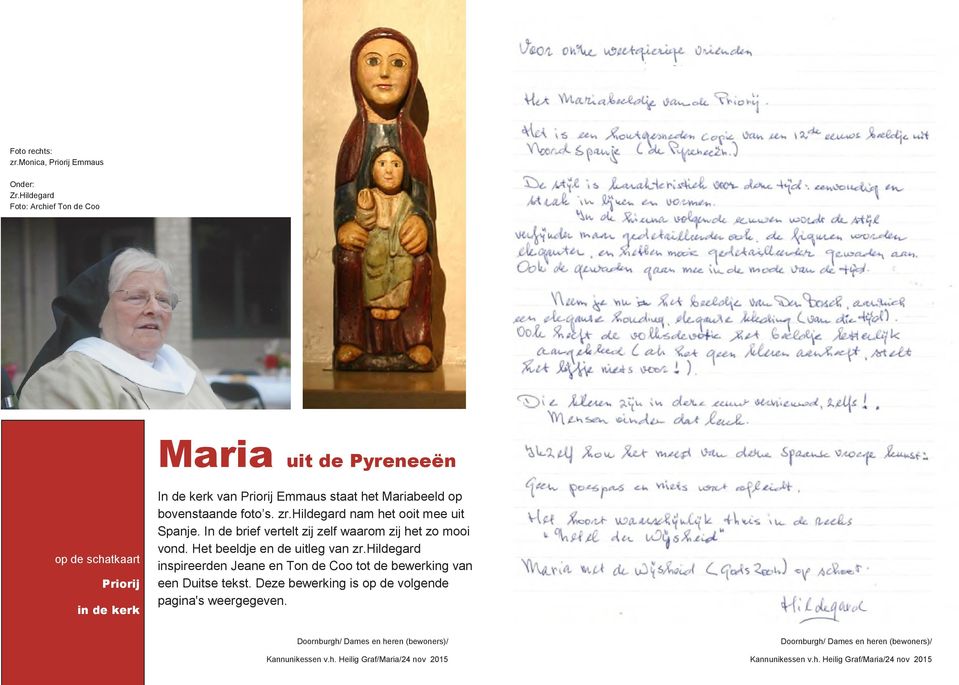 Foto rechts:
zr.Monica, Priorij Emmaus
Onder:
Zr.Hildegard
Foto: Archief Ton de Coo
Maria uit de Pyreneeën
op de schatkaart
Priorij
in de kerk
In de kerk van Priorij Emmaus staat het Mariabeeld op
bovenstaande foto's. zr.Hildegard nam het ooit mee uit
Spanje. In de brief vertelt zij zelf waarom zij het zo mooi
vond. Het beeldje en de uitleg van zr.Hildegard
inspireerden Jeane en Ton de Coo tot de bewerking van
een Duitse tekst. Deze bewerking is op de volgende
pagina's weergegeven.
Doornburgh/ Dames en heren (bewoners)/
Kannunikessen v.h. Heilig Graf/Maria/24 nov 2015
Voor onze weetgierige vrienden
Het Mariabeeldje van de Priorij.
Het is een houtgesneden copie van een 12de eeuws beeldje uit
Noord Spanje (de Pyreneeën)
De stijl is karakteristiek voor deze tijd: eenvoudig en
strak in lijnen en vormen.
In de hierna volgende eeuwen wordt de stijl
verfijnder maar gedetailleerder ook, de figuren worden
eleganter, en hebben mooie gedetailleerder gewaden aan.
Ook de gewaden gaan mee in de mode van de tijd.
Neem je nu in het beeldje van Den Bosch,
een elegante houding, elegante kleding (van die tijd).
Ook heeft de volksdevotie het beeldje letterlijk
aangekleed (als het geen kleren aanheeft, stelt
het lijfje niets voor!).
Die kleren zijn in deze eeuw vernieuwd, zelfs!.
Mensen vinden dat leuk.
Ikzelf hou het meest van deze Spaanse vroege kunst:
Geen poespas en niets wat afleidt.
Het hoort waarschijnlijk thuis in de reeks
"Zetel der Wijsheid"
Maria met de Wijsheid (Gods Zoon) op schoot.
Hildegard
Doornburgh/ Dames en heren (bewoners)/
Kannunikessen v.h. Heilig Graf/Maria/24 nov 2015